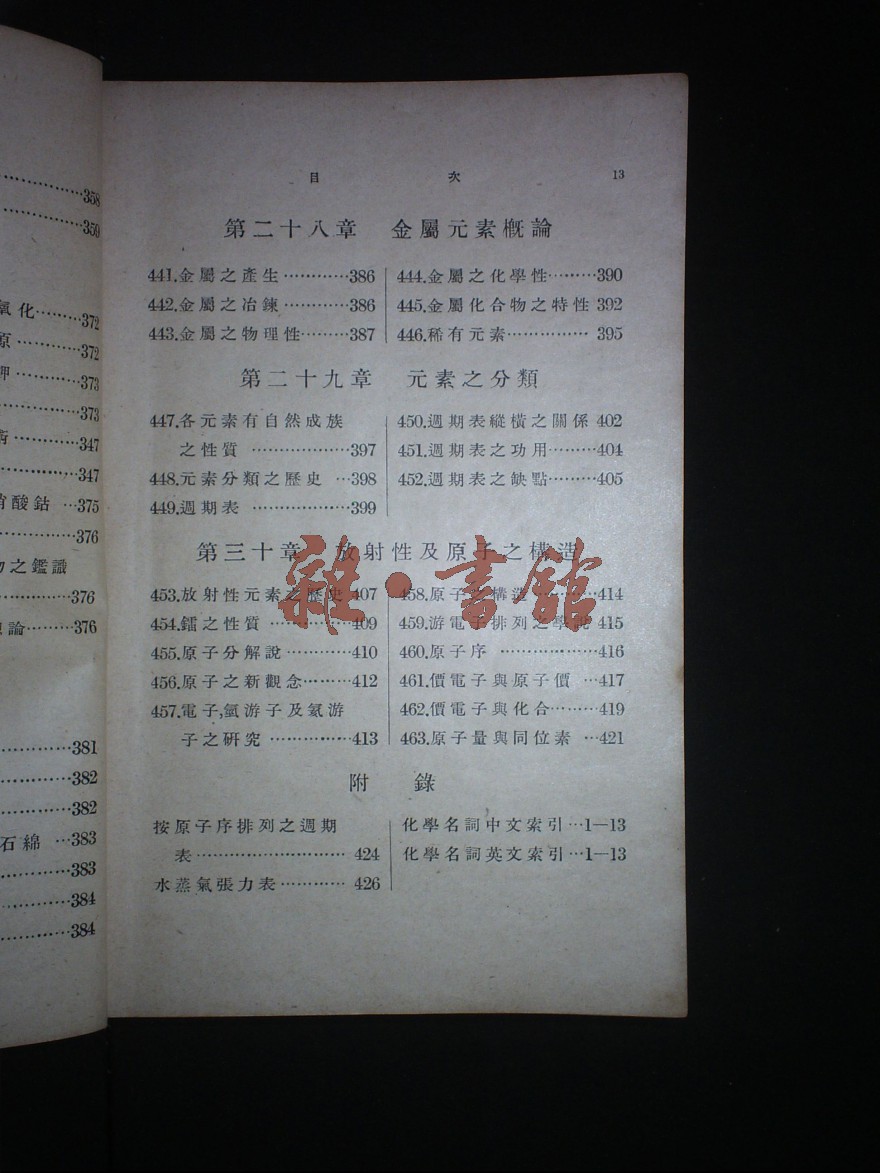 358
359
氧化·········372
原··········372
373
373
347
347
硝酸鈷 ···375
376
物之鑑識
376
論·········376
381
382
382
石綿 ···383
383
384
384
目 次 13
第二十八章 金屬元素概論
441.金屬之產生············386
442.金屬之冶鍊············386
443.金屬之物理性·········387
444.金屬之化學性·········390
445.金屬化合物之特性 392
446.稀有元素··············· 395
第二十九章 元素之分類
447.各元素有自然成族
之性質 ··················397
448.元素分類之歷史 ···398
449.週期表 ··················399
450.週期表縱橫之關係 402
451.週期表之功用·········404
452.週期表之缺點·········405
第三十章 放射性及原子之構造
453.放射性元素之歷史 407
454.鐳之性質 ···············409
455.原子分解說············410
456.原子之新觀念·········412
457.電子,氫游子及氦游
子之研究 ···············413
458.原子之構造 ············414
459.游電子排列之學說 415
460.原子序 ··················416
461.價電子與原子價 ···417
462.價電子與化合·········419
463.原子量與同位素 ···421
附 錄
按原子序排列之週期
表························ 424
水蒸氣張力表············ 426
化學名詞中文索引···1—13
化學名詞英文索引···1—13
雜·書館